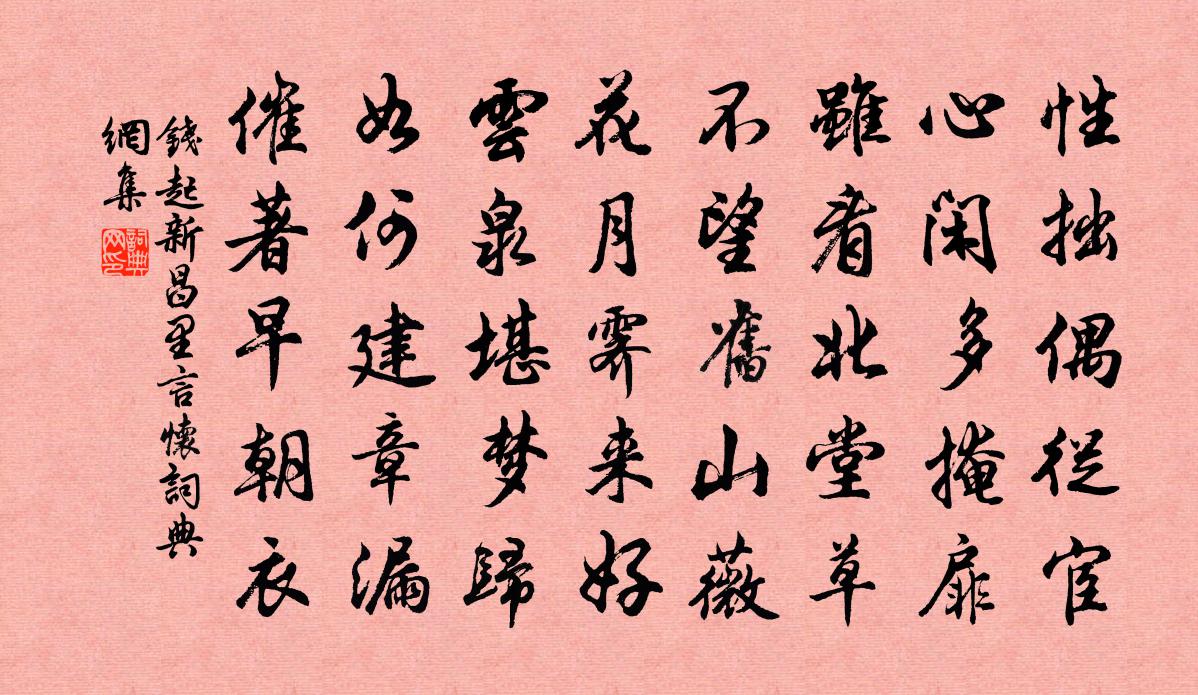 性拙偶從宦
心閑多掩扉
雖看北堂草
不望舊山薇
花月霽来好
雲泉堪梦歸
如何建章漏
催著早朝衣
錢起新昌里言懷詞典
網集
詞典
网印